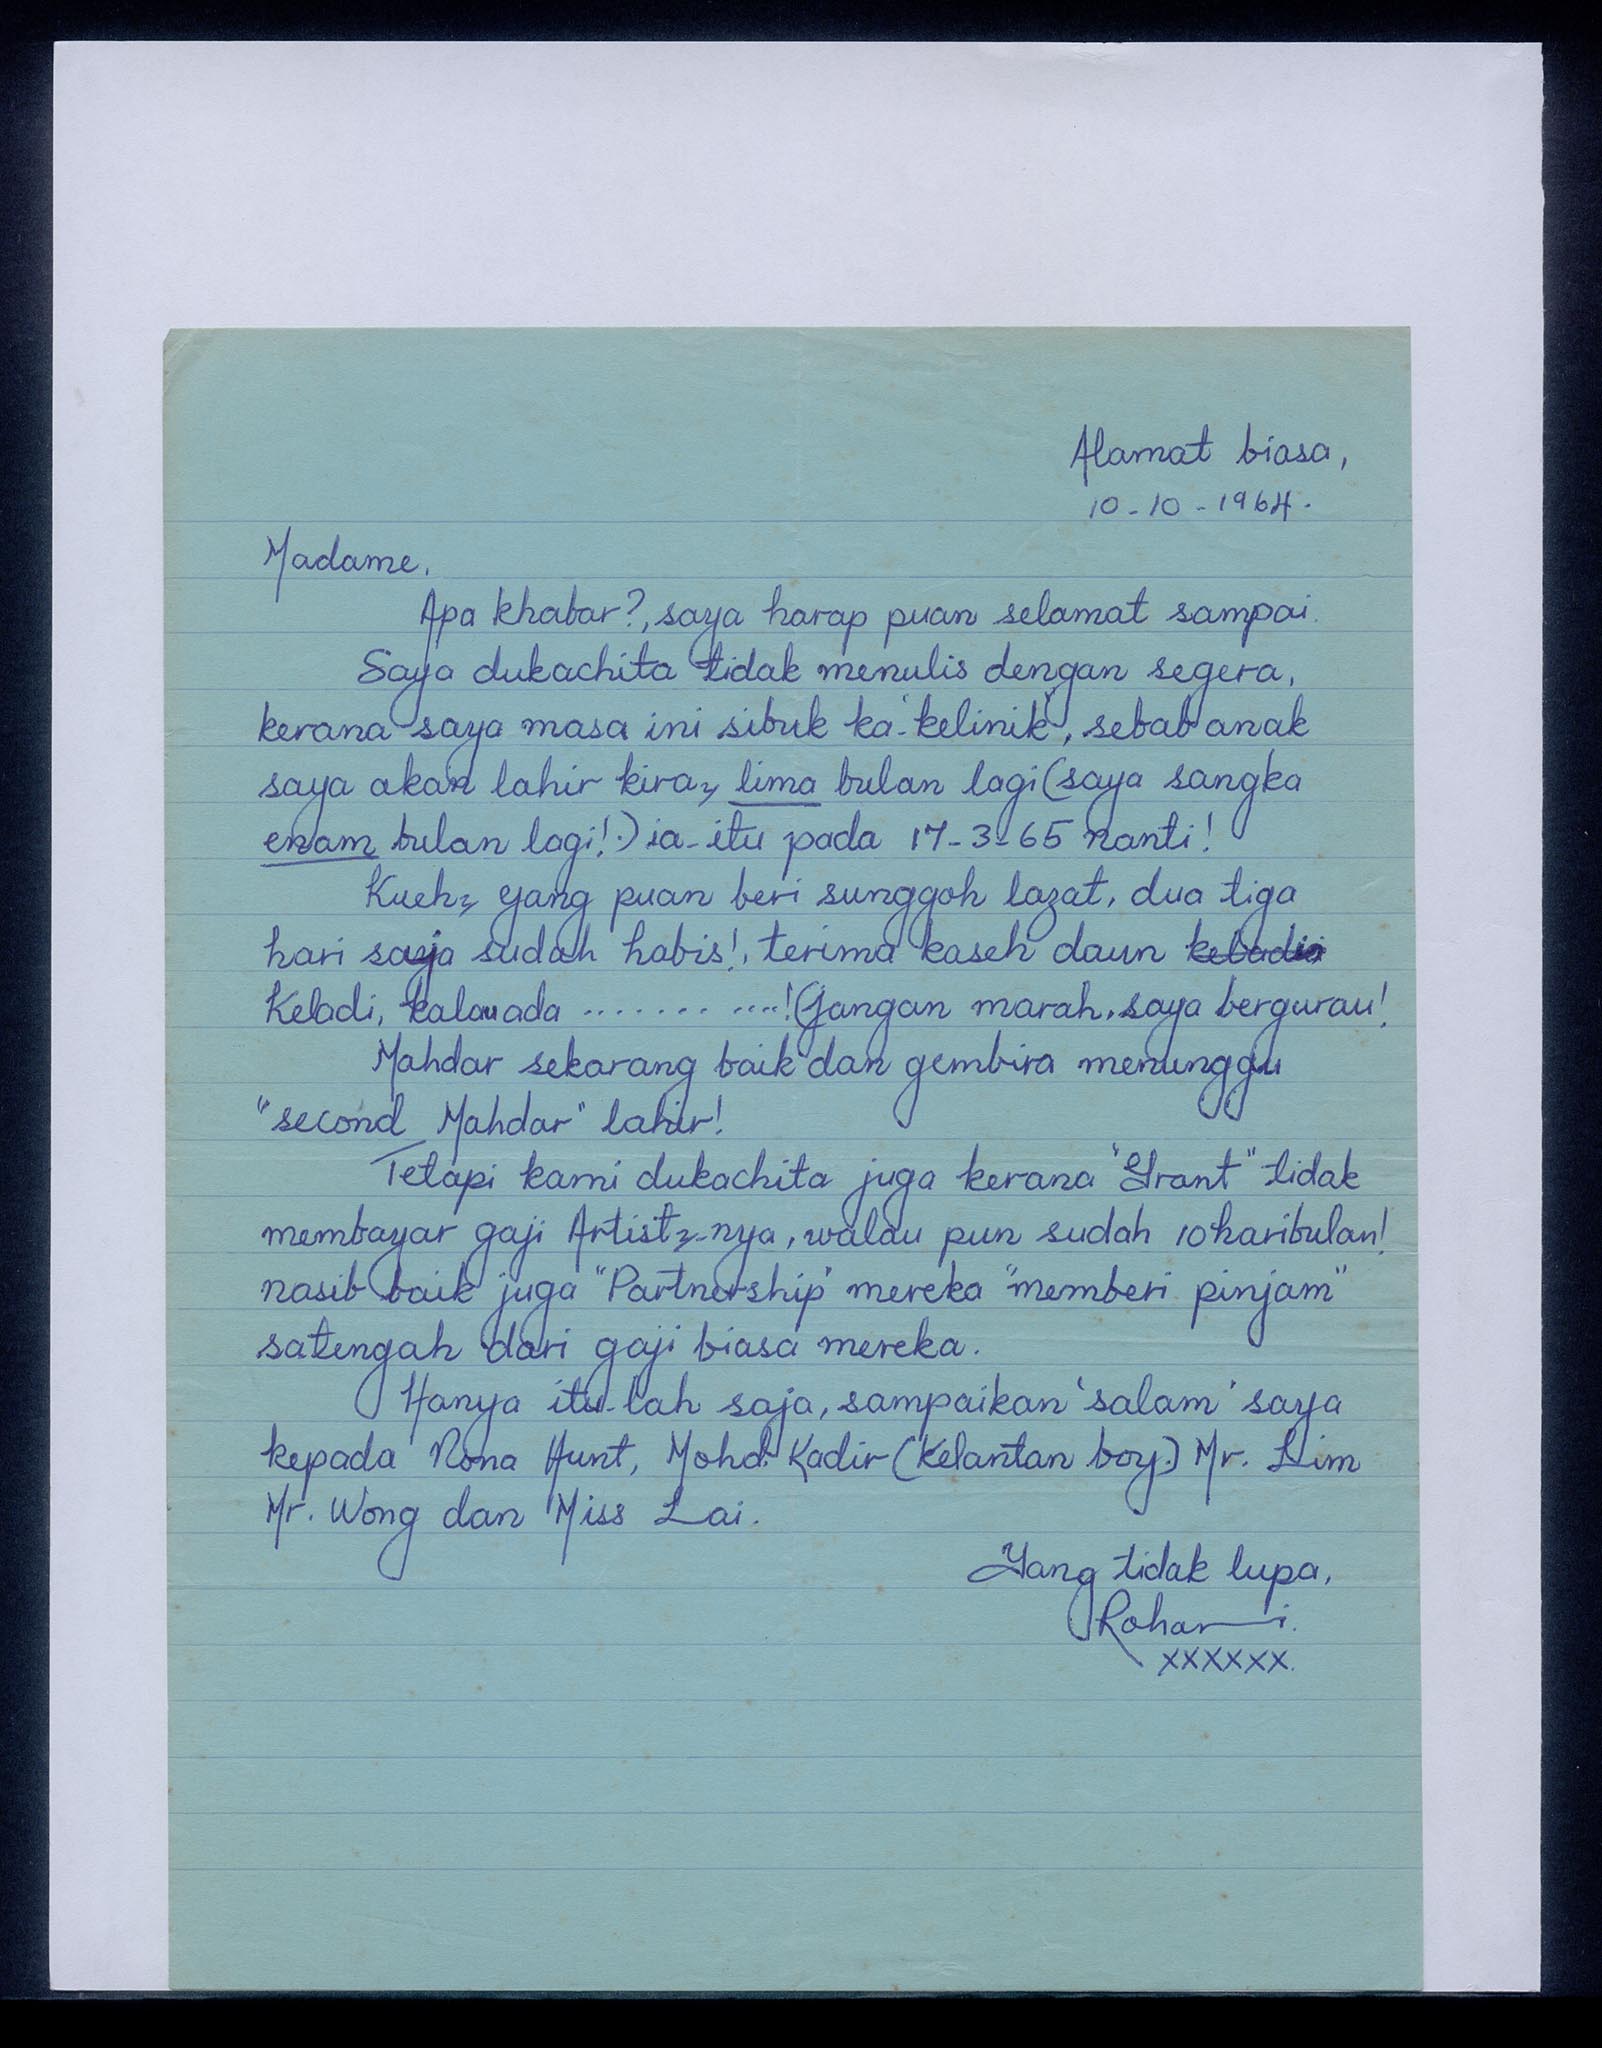 Alamat biasa,
10-10-1964.
Madame,
Apa khabar?, saya harap puan selamat sampai.
Saya dukachita tidak menulis dengan segera,
kerana saya masa ini sibuk ka-'kelinik', sebab anak
saya akan lahir kira2 lima bulan lagi (saya sangka
enam bulan lagi!.) ia-itu pada 17-3-65 nanti!
Kueh2 yang puan beri sunggoh lazat, dua tiga
hari saja sudah habis!, terima kaseh daun
Keladi, kalau ada ...........! (Jangan marah, saya bergurau!
Mahdar sekarang baik dan gembira menunggu
"second Mahdar" lahir!
Tetapi kami dukachita juga kerana "Grant" tidak
membayar gaji Artist2-nya, walau pun sudah 10 haribulan!
nasib baik juga "Partnership" mereka "memberi pinjam"
satengah dari gaji biasa mereka.
Hanya itu-lah saja, sampaikan 'salam' saya
kepada Nona Hunt, Mohd. Kadir (Kelantan boy.) Mr. Lim
Mr. Wong dan Miss Lai.
Yang tidak lupa,
Rohani.
xxxxxx.